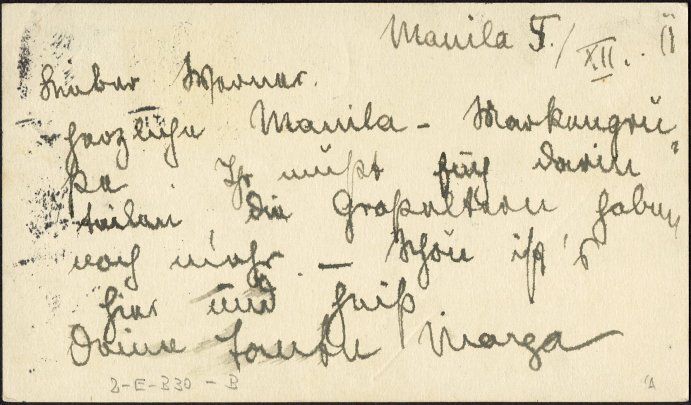 Manila 5./XII. 11
Lieber Werner.
herzliche Manila - Markengrü
ße. Ihr müßt Euch darin
teilen, die Großeltern haben
noch mehr. - Schön ist's
hier und heiß
Deine Tante Marga
2-E-330-B